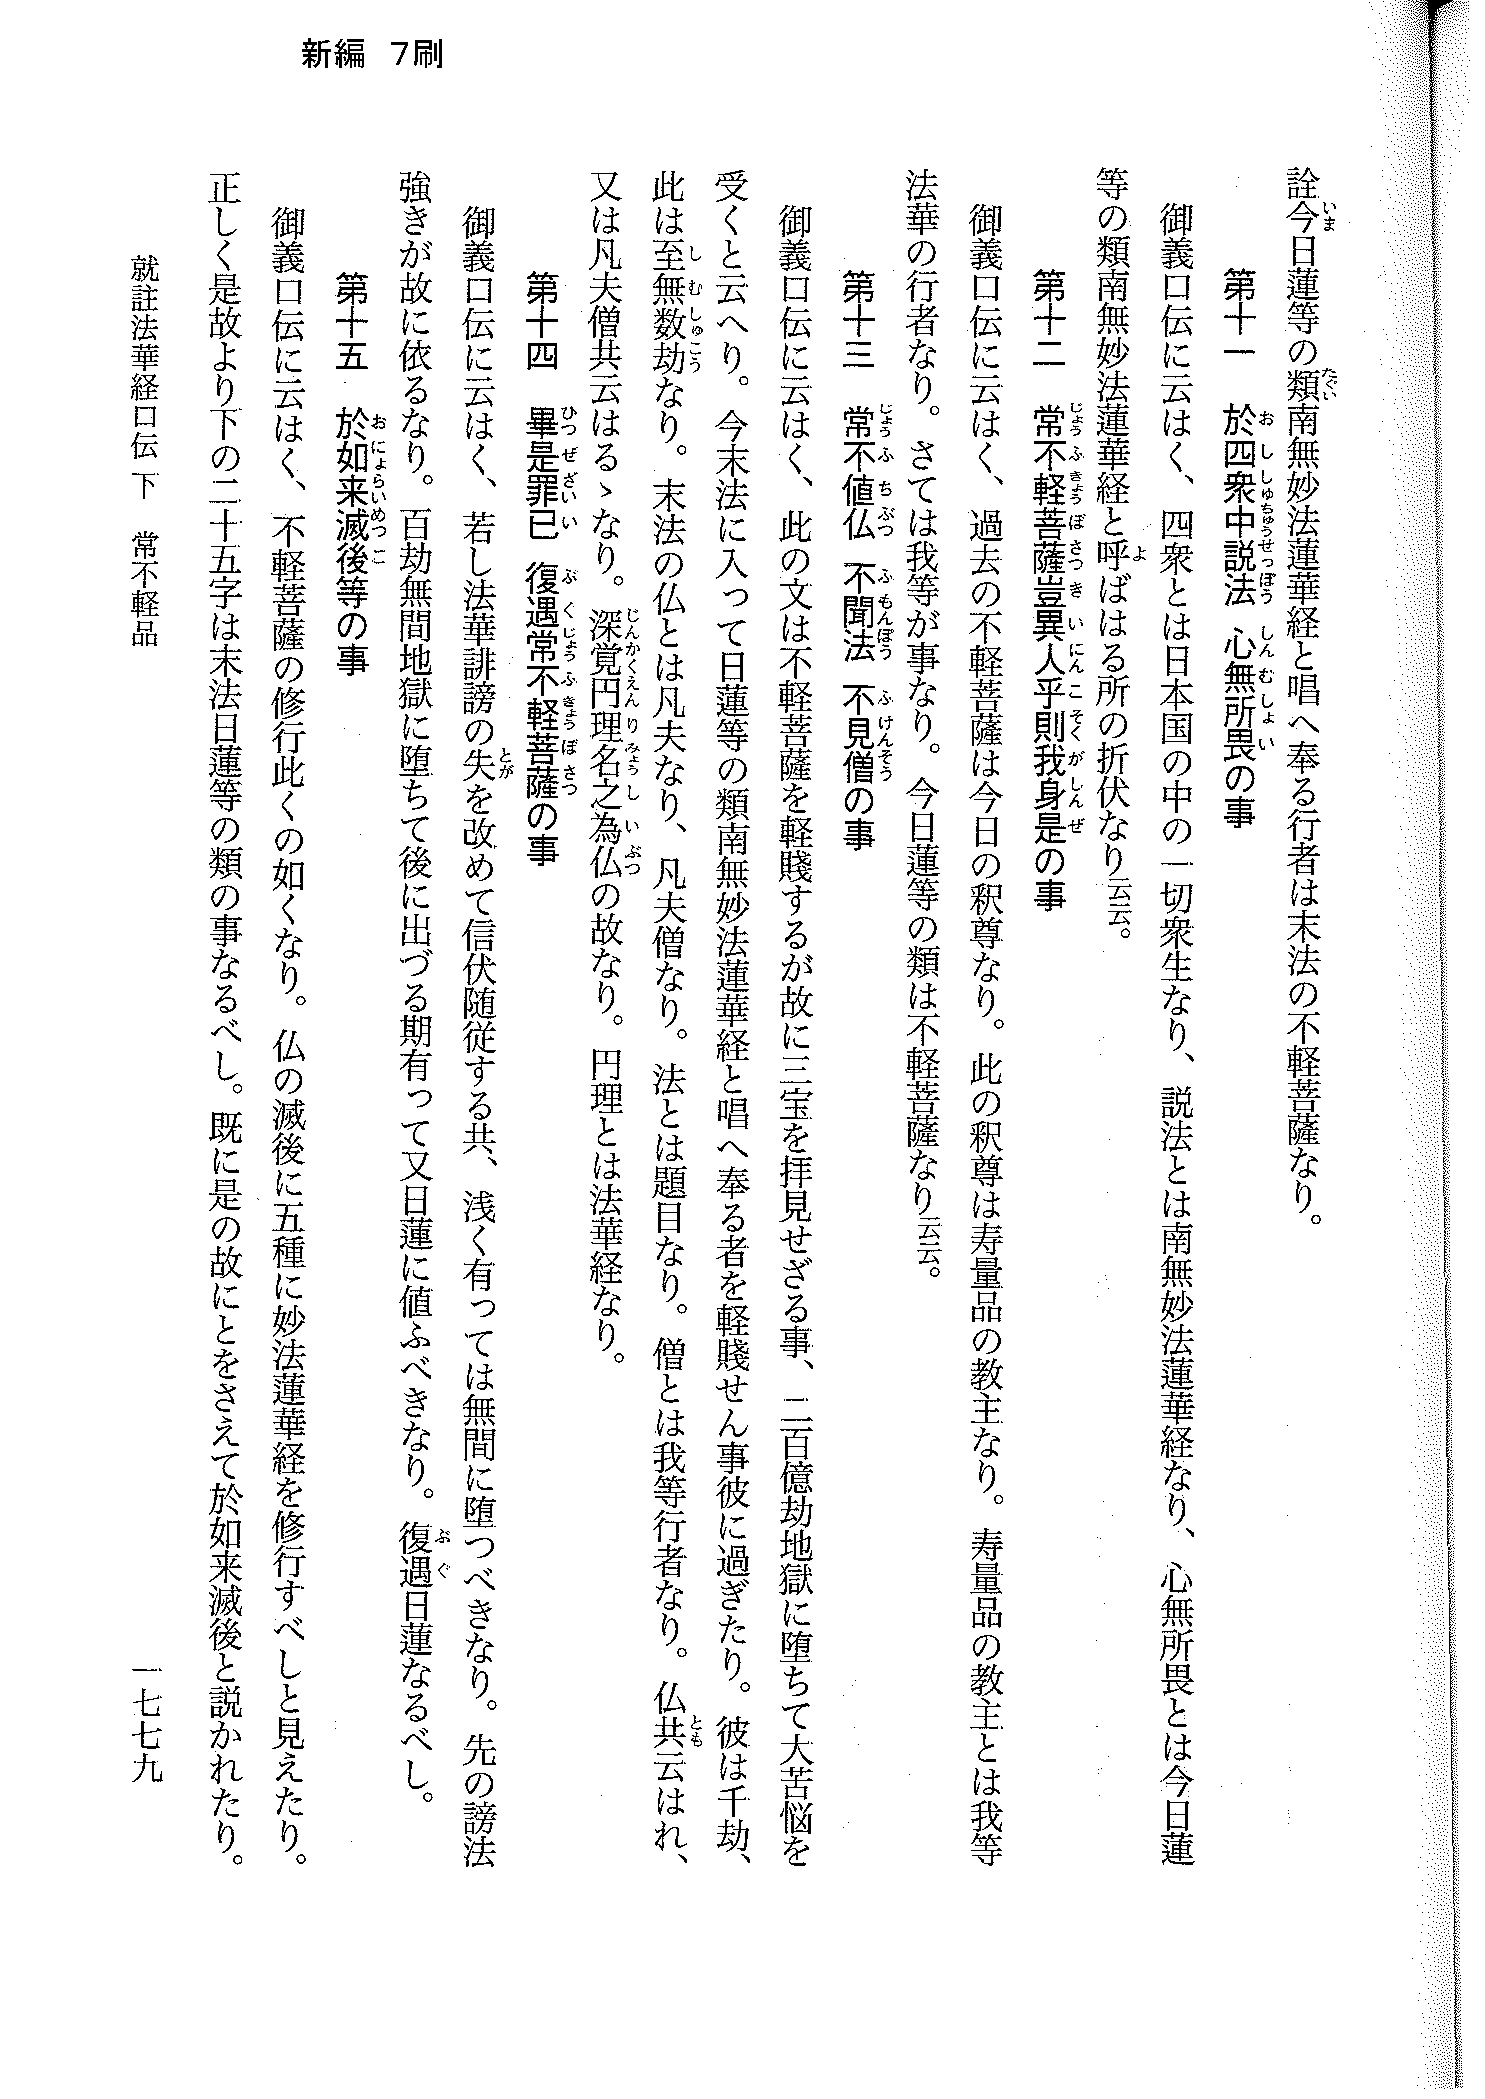 新編 7刷
詮今日蓮等の類南無妙法蓮華経と唱へ奉る行者は末法の不軽菩薩なり。
第十一 於四衆中説法 心無所畏の事
御義口伝に云はく、四衆とは日本国の中の一切衆生なり、説法とは南無妙法蓮華経なり、心無所畏とは今日蓮
等の類南無妙法蓮華経と呼ばはる所の折伏なり云云。
第十二 常不軽菩薩豈異人乎則我身是の事
御義口伝に云はく、過去の不軽菩薩は今日の釈尊なり。此の釈尊は寿量品の教主なり。寿量品の教主とは我等
法華の行者なり。さては我等が事なり。今日蓮等の類は不軽菩薩なり云云。
第十三 常不値仏 不聞法 不見僧の事
御義口伝に云はく、此の文は不軽菩薩を軽賤するが故に三宝を拝見せざる事、二百億劫地獄に堕ちて大苦悩を
受くと云へり。今末法に入って日蓮等の類南無妙法蓮華経と唱へ奉る者を軽賤せん事彼に過ぎたり。彼は千劫、
此は至無数劫なり。末法の仏とは凡夫なり、凡夫僧なり。法とは題目なり。僧とは我等行者なり。仏共云はれ、
又は凡夫僧共云はるゝなり。深覚円理名之為仏の故なり。円理とは法華経なり。
第十四 畢是罪已 復遇常不軽菩薩の事
御義口伝に云はく、若し法華誹謗の失を改めて信伏随従する共、浅く有っては無間に堕つべきなり。先の謗法
強きが故に依るなり。百劫無間地獄に堕ちて後に出づる期有って又日蓮に値ふべきなり。復遇日蓮なるべし。
第十五 於如来滅後等の事
御義口伝に云はく、不軽菩薩の修行此くの如くなり。仏の滅後に五種に妙法蓮華経を修行すべしと見えたり。
正しく是故より下の二十五字は末法日蓮等の類の事なるべし。既に是の故にとをさえて於如来滅後と説かれたり。
就註法華経口伝 下 常不軽品
一七七九